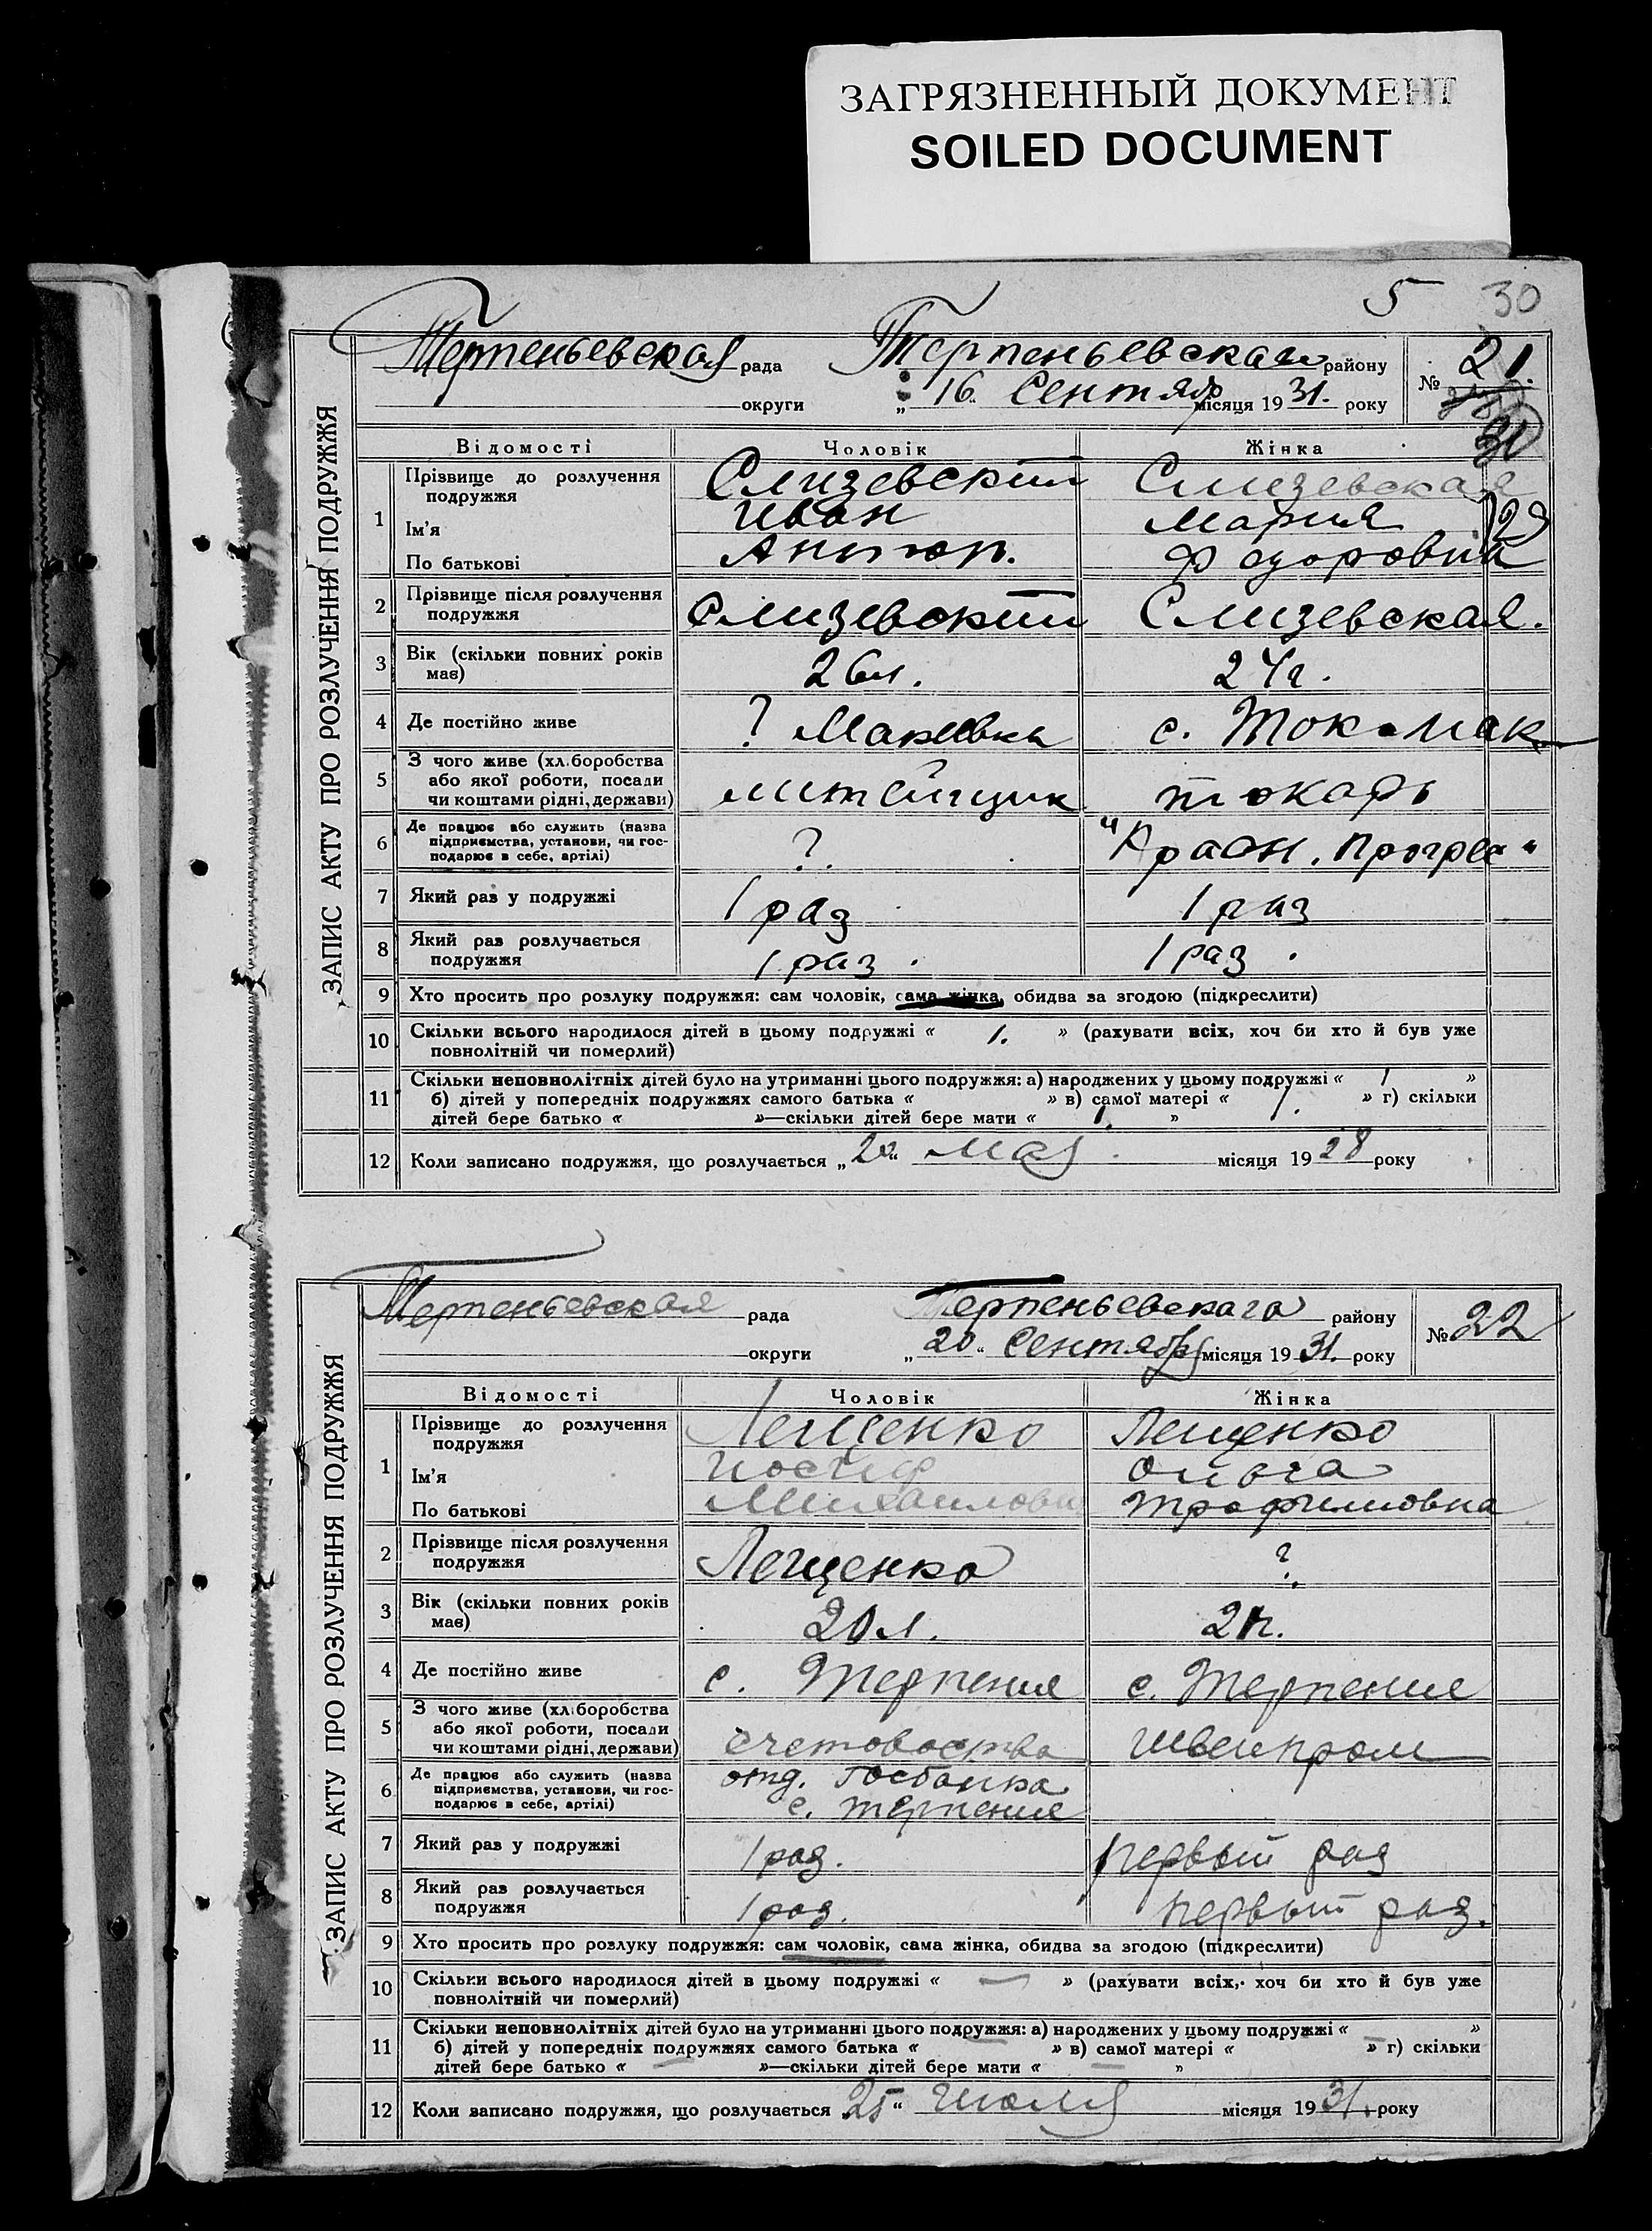 ЗАГРЯЗНЕННЫЙ ДОКУМЕНТ
SOILED DOCUMENT
5 30
ЗАПИС АКТУ ПРО РОЗЛУЧЕННЯ ПОДРУЖЖЯ
Терпеньевская рада Терпеньевскаго району № 21.
округи „16“ Сентябр місяця 1931. року
Відомості Чоловік Жінка
1 Прізвище до розлучення подружжя Слизевский Слизевская
Ім'я Иван Мария 29
По батькові Антон. Федоровна
2 Прізвище після розлучення подружжя Слизевский Слизевская.
3 Вік (скільки повних років має) 26л. 24г.
4 Де постійно живе ? Макеевка с. Токмак
5 З чого живе (хліборобства або якої роботи, посади чи коштами рідні, держави) литейщик токарь
6 Де працює або служить (назва підприємства, установи, чи господарює в себе, артілі) ?. "Красн. Прогрес"
7 Який раз у подружжі 1 раз 1 раз
8 Який раз розлучається подружжя 1 раз. 1 раз.
9 Хто просить про розлуку подружжя: сам чоловік, сама жінка, обидва за згодою (підкреслити)
10 Скільки всього народилося дітей в цьому подружжі « 1. » (рахувати всіх, хоч би хто й був уже
повнолітній чи померлий)
11 Скільки неповнолітніх дітей було на утриманні цього подружжя: а) народжених у цьому подружжі « 1 »
б) дітей у попередніх подружжях самого батька « » в) самої матері « 1. » г) скільки
дітей бере батько « »—скільки дітей бере мати « 1. »
12 Коли записано подружжя, що розлучається „20“ мая місяця 1928 року
ЗАПИС АКТУ ПРО РОЗЛУЧЕННЯ ПОДРУЖЖЯ
Терпеньевская рада Терпеньевскаго району № 22
округи „20“ Сентября місяця 1931. року
Відомості Чоловік Жінка
1 Прізвище до розлучення подружжя Лещенко Лещенко
Ім'я Иосиф Ольга
По батькові Михайлович Трофимовна
2 Прізвище після розлучення подружжя Лещенко ?
3 Вік (скільки повних років має) 20л. 21г.
4 Де постійно живе с. Терпения с. Терпение
5 З чого живе (хліборобства або якої роботи, посади чи коштами рідні, держави) счетоводства швейпром
6 Де працює або служить (назва підприємства, установи, чи господарює в себе, артілі) отд. Госбанка
с. Терпения
7 Який раз у подружжі 1 раз. первый раз
8 Який раз розлучається подружжя 1 раз. первый раз.
9 Хто просить про розлуку подружжя: сам чоловік, сама жінка, обидва за згодою (підкреслити)
10 Скільки всього народилося дітей в цьому подружжі « — » (рахувати всіх, хоч би хто й був уже
повнолітній чи померлий)
11 Скільки неповнолітніх дітей було на утриманні цього подружжя: а) народжених у цьому подружжі « »
б) дітей у попередніх подружжях самого батька « — » в) самої матері « — » г) скільки
дітей бере батько « — »—скільки дітей бере мати « — »
12 Коли записано подружжя, що розлучається 25“ июля місяця 1931. року